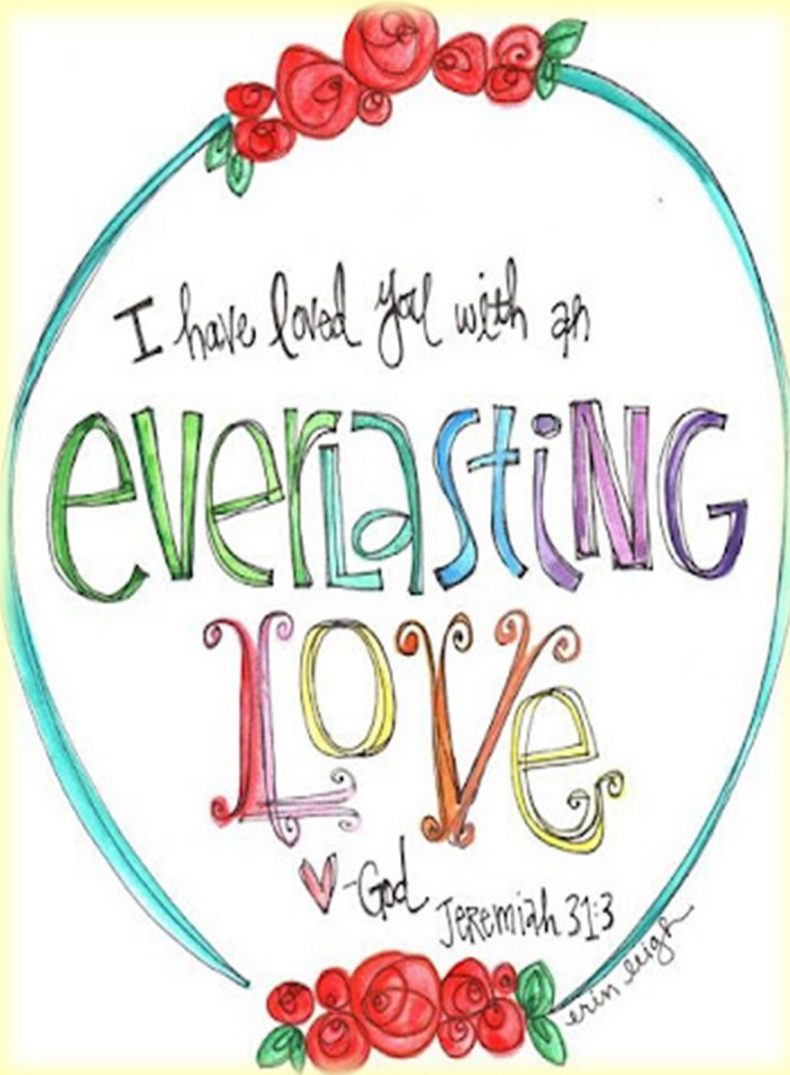 I have loved you with an
everLasting
Love
-God
Jeremiah 31:3
erin leigh